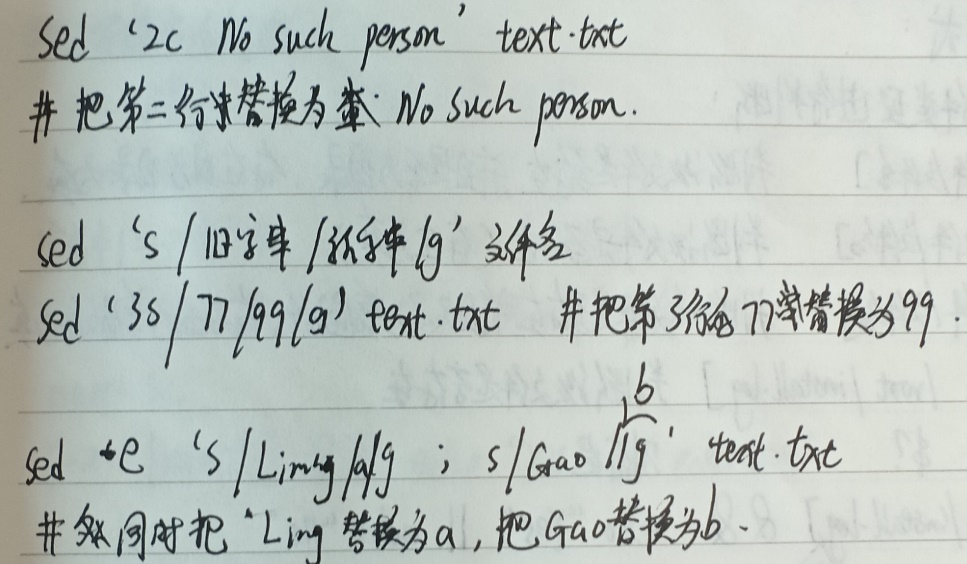 sed '2c No such person' text.txt
# 把第二行替换为 No such person.
sed 's/旧字串/新字串/g' 文件名
sed '3s/77/99/g' text.txt #把第3行的77替换为99.
sed -e 's/Liming/a/g ; s/Gao/b/g' text.txt
# 同时把 Ling 替换为a,把Gao替换为b.